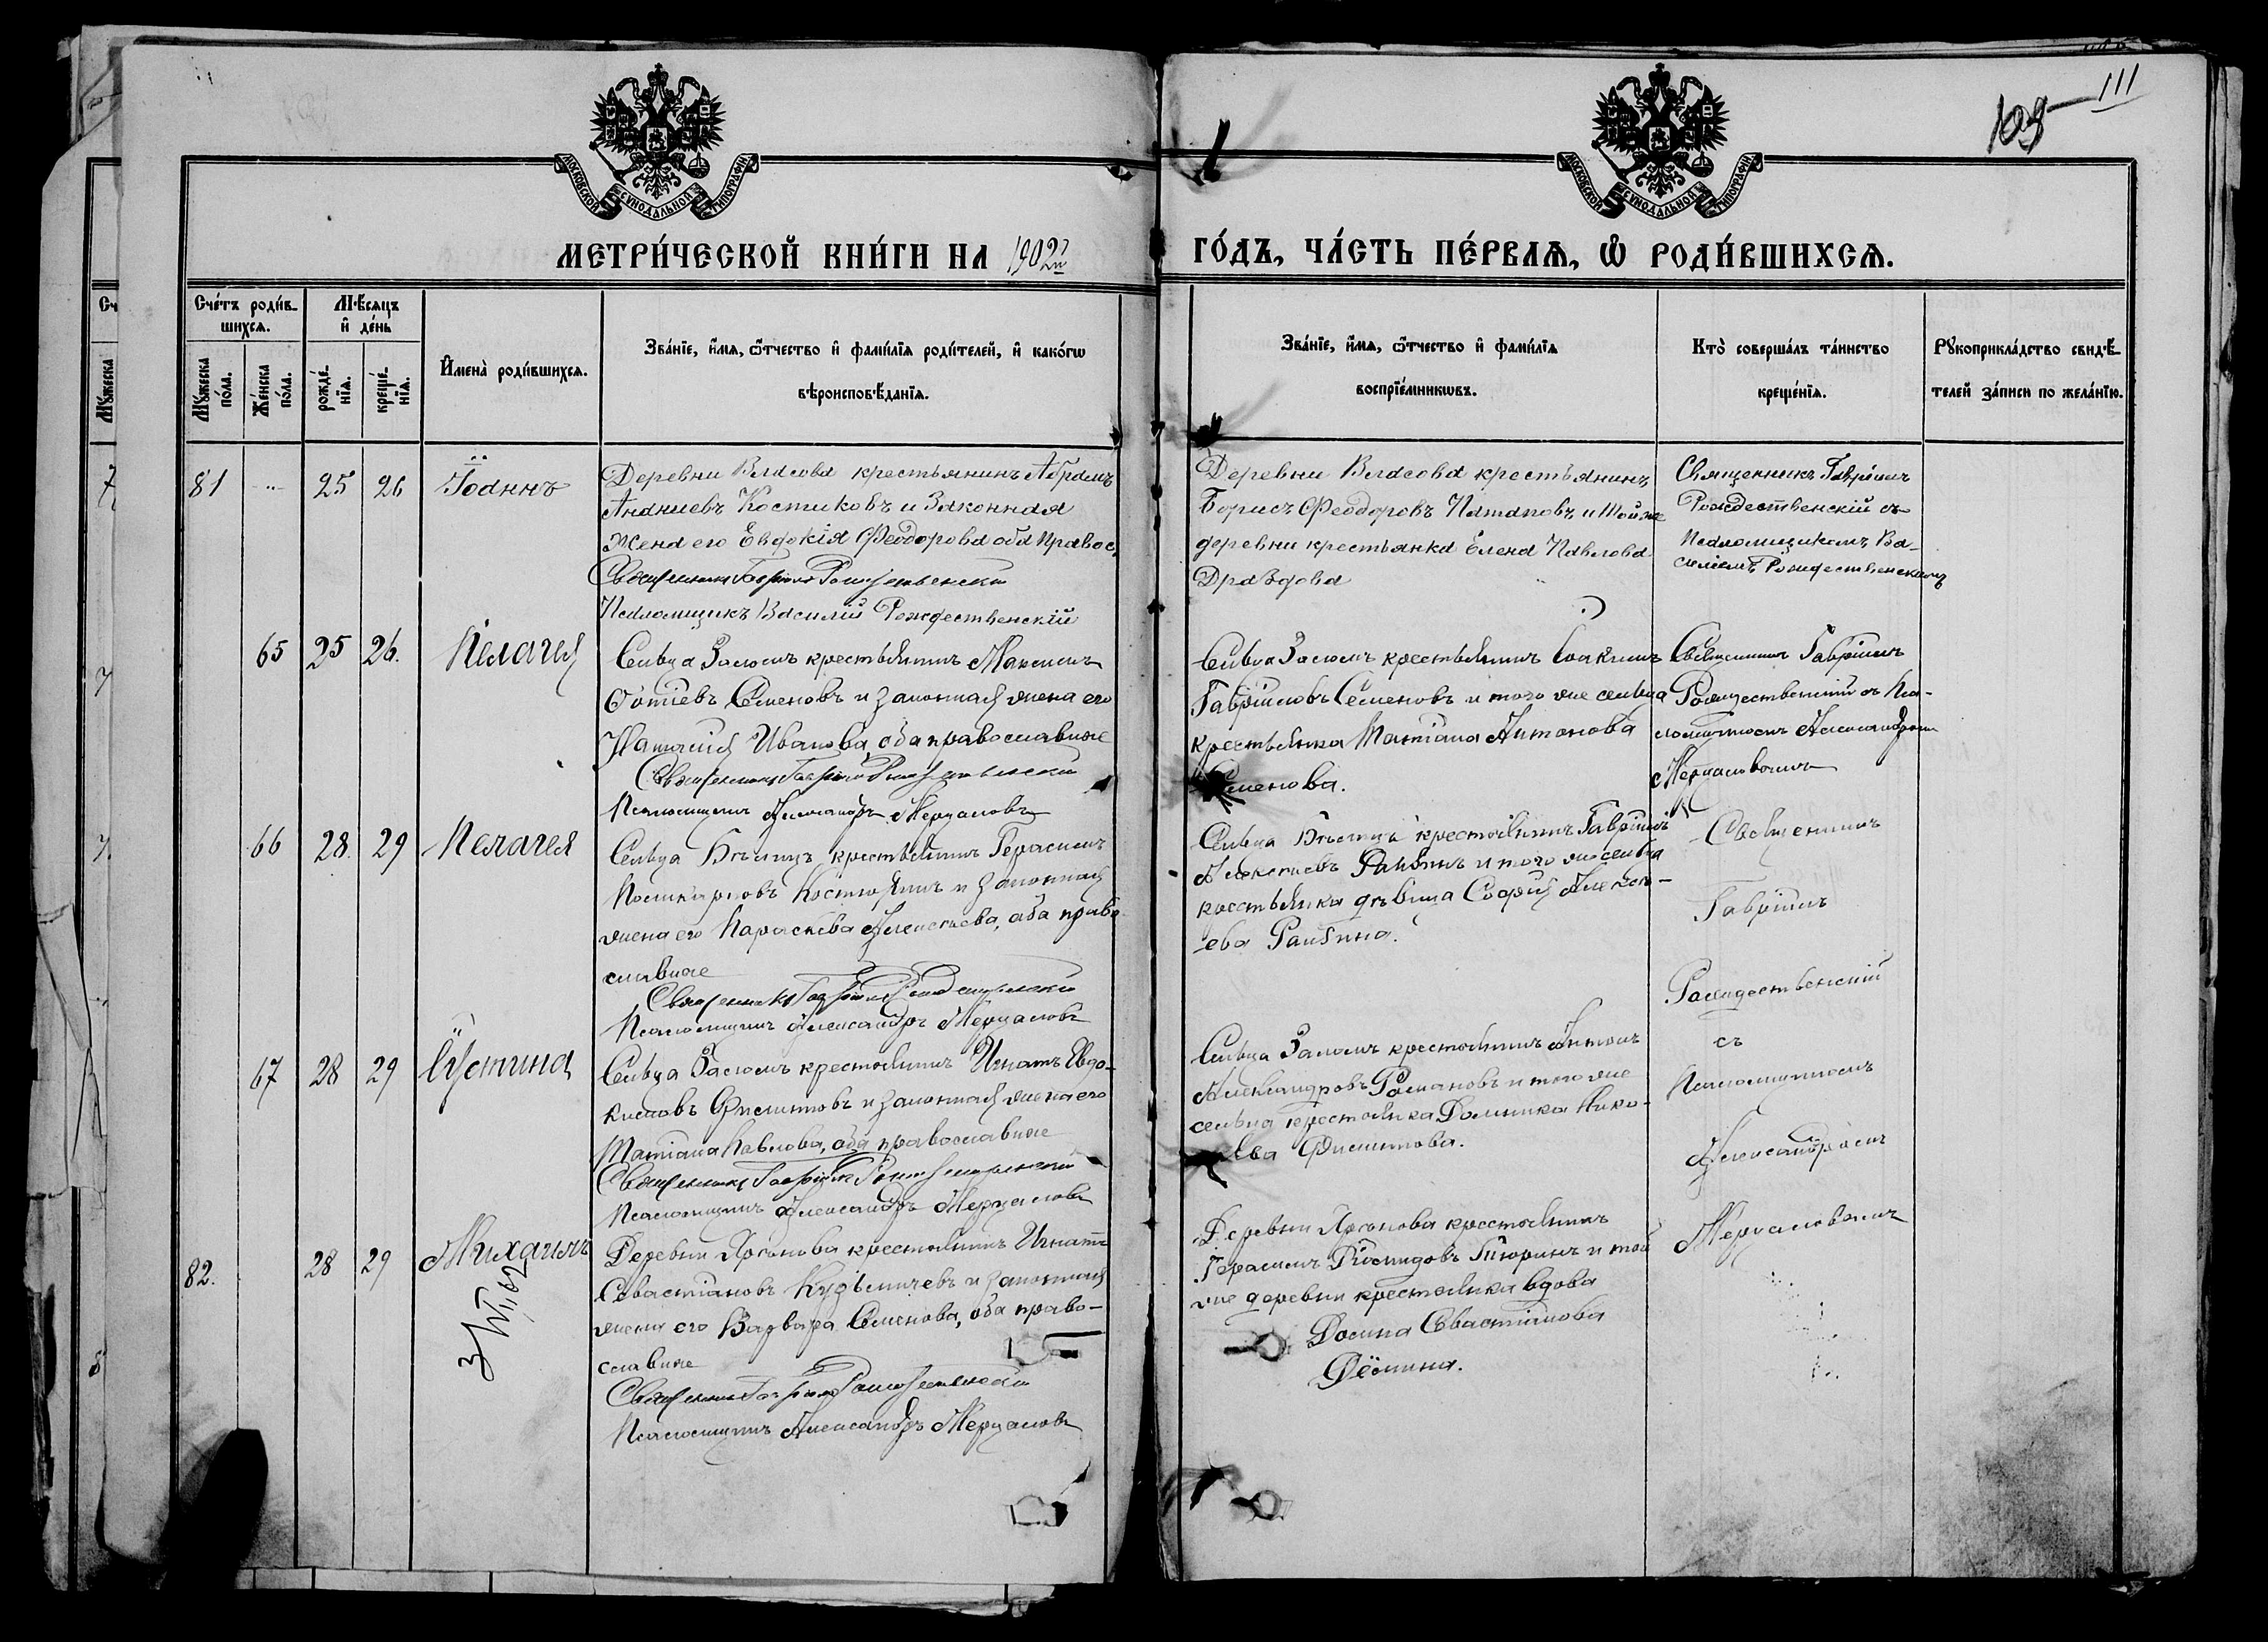 109 111
МОСКОВСКОЙ СУНОДАЛЬНОЙ ТИПОГРАФІИ
МОСКОВСКОЙ СУНОДАЛЬНОЙ ТИПОГРАФІИ
МЕТРИ́ЧЕСКОЙ КНИ́ГИ НА 1902й ГО́ДЪ, ЧА́СТЬ ПЕ́РВАѦ, Ѡ РОДИ́ВШИХСѦ.
Сче́тъ роди́в-
шихсѧ.
Мꙋ́жеска по́ла.
Же́нска по́ла.
Мѣ́сѧцъ и҆ де́нь
рожде́-нїѧ.
креще́-нїѧ.
И҆мена̀ роди́вшихсѧ.
Зва́нїе, и҆́мѧ, ѻ҆́тчество и҆ фами́лїѧ роди́телей, и҆ како́гѡ
вѣроисповѣ́данїѧ.
Зва́нїе, и҆́мѧ, ѻ҆́тчество и҆ фами́лїѧ
воспрїе́мникѡвъ.
Кто̀ соверша́лъ та́инство
креще́нїѧ.
Рꙋкоприкла́дство свидѣ́-
телей за́писи по жела́нїю.
81 25 26 Іоаннъ
Деревни Власова крестьянинъ Абрамъ
Ананиевъ Костиковъ и законная
жена его Евдокія Феодорова оба правос.
Священникъ Гавріилъ Рождественскій
Псаломщикъ Василій Рождественскій
Деревни Власова крестьянинъ
Борисъ Феодоровъ Потаповъ и той же
деревни крестьянка Елена Павлова
Драздова
Священникъ Гавріилъ
Рождественскій съ
Псаломщикомъ Ва-
силіемъ Рождественскимъ
65 25 26. Пелагея
Сельца крестьянинъ Максимъ
Фотіевъ Семеновъ и законная жена его
Наталия Иванова, оба православные
Священникъ Гавріилъ Рождественскій
Псаломщикъ Александръ Мерцаловъ
Сельца крестьянинъ Іоакимъ
Гавріиловъ Семеновъ и того же сельца
крестьянка Татіана Антонова
Семенова.
Священникъ Гавріилъ
Рождественскій съ Пса-
ломщикомъ Александромъ
Мерцаловымъ
66 28. 29 Пелагея
Сельца крестьянинъ Герасимъ
Поликарповъ Костюшинъ и законная
жена его Параскева Алексѣева, оба право-
славные
Священникъ Гавріилъ Рождественскій
Псаломщикъ Александръ Мерцаловъ
Сельца крестьянинъ Гавріилъ
Алексѣевъ и того же сельца
крестьянка дѣвица Софія Алексѣ-
ева
Священникъ
Гавріилъ
Рождественскій
съ
Псаломщикомъ
Александромъ
Мерцаловымъ
67 28 29 Іустина
Сельца крестьянинъ Игнатъ Евдо-
кимовъ Филиповъ и законная жена его
Татіана Павлова, оба православные
Священникъ Гавріилъ Рождественскій
Псаломщикъ Александръ Мерцаловъ
Сельца крестьянинъ Антонъ
Александровъ Романовъ и того же
сельца крестьянка Домника Нико-
лаева Филипова.
82. 28 29 Михаилъ
Деревни крестьянинъ Игнатъ
Севастіановъ Кузьмичевъ и законная
жена его Варвара Семенова, оба право-
славные
Священникъ Гавріилъ Рождественскій
Псаломщикъ Александръ Мерцаловъ
Деревни крестьянинъ
Герасимъ Тюринъ и той
же деревни крестьянка вдова
Домна Севастіанова
Дёмина.